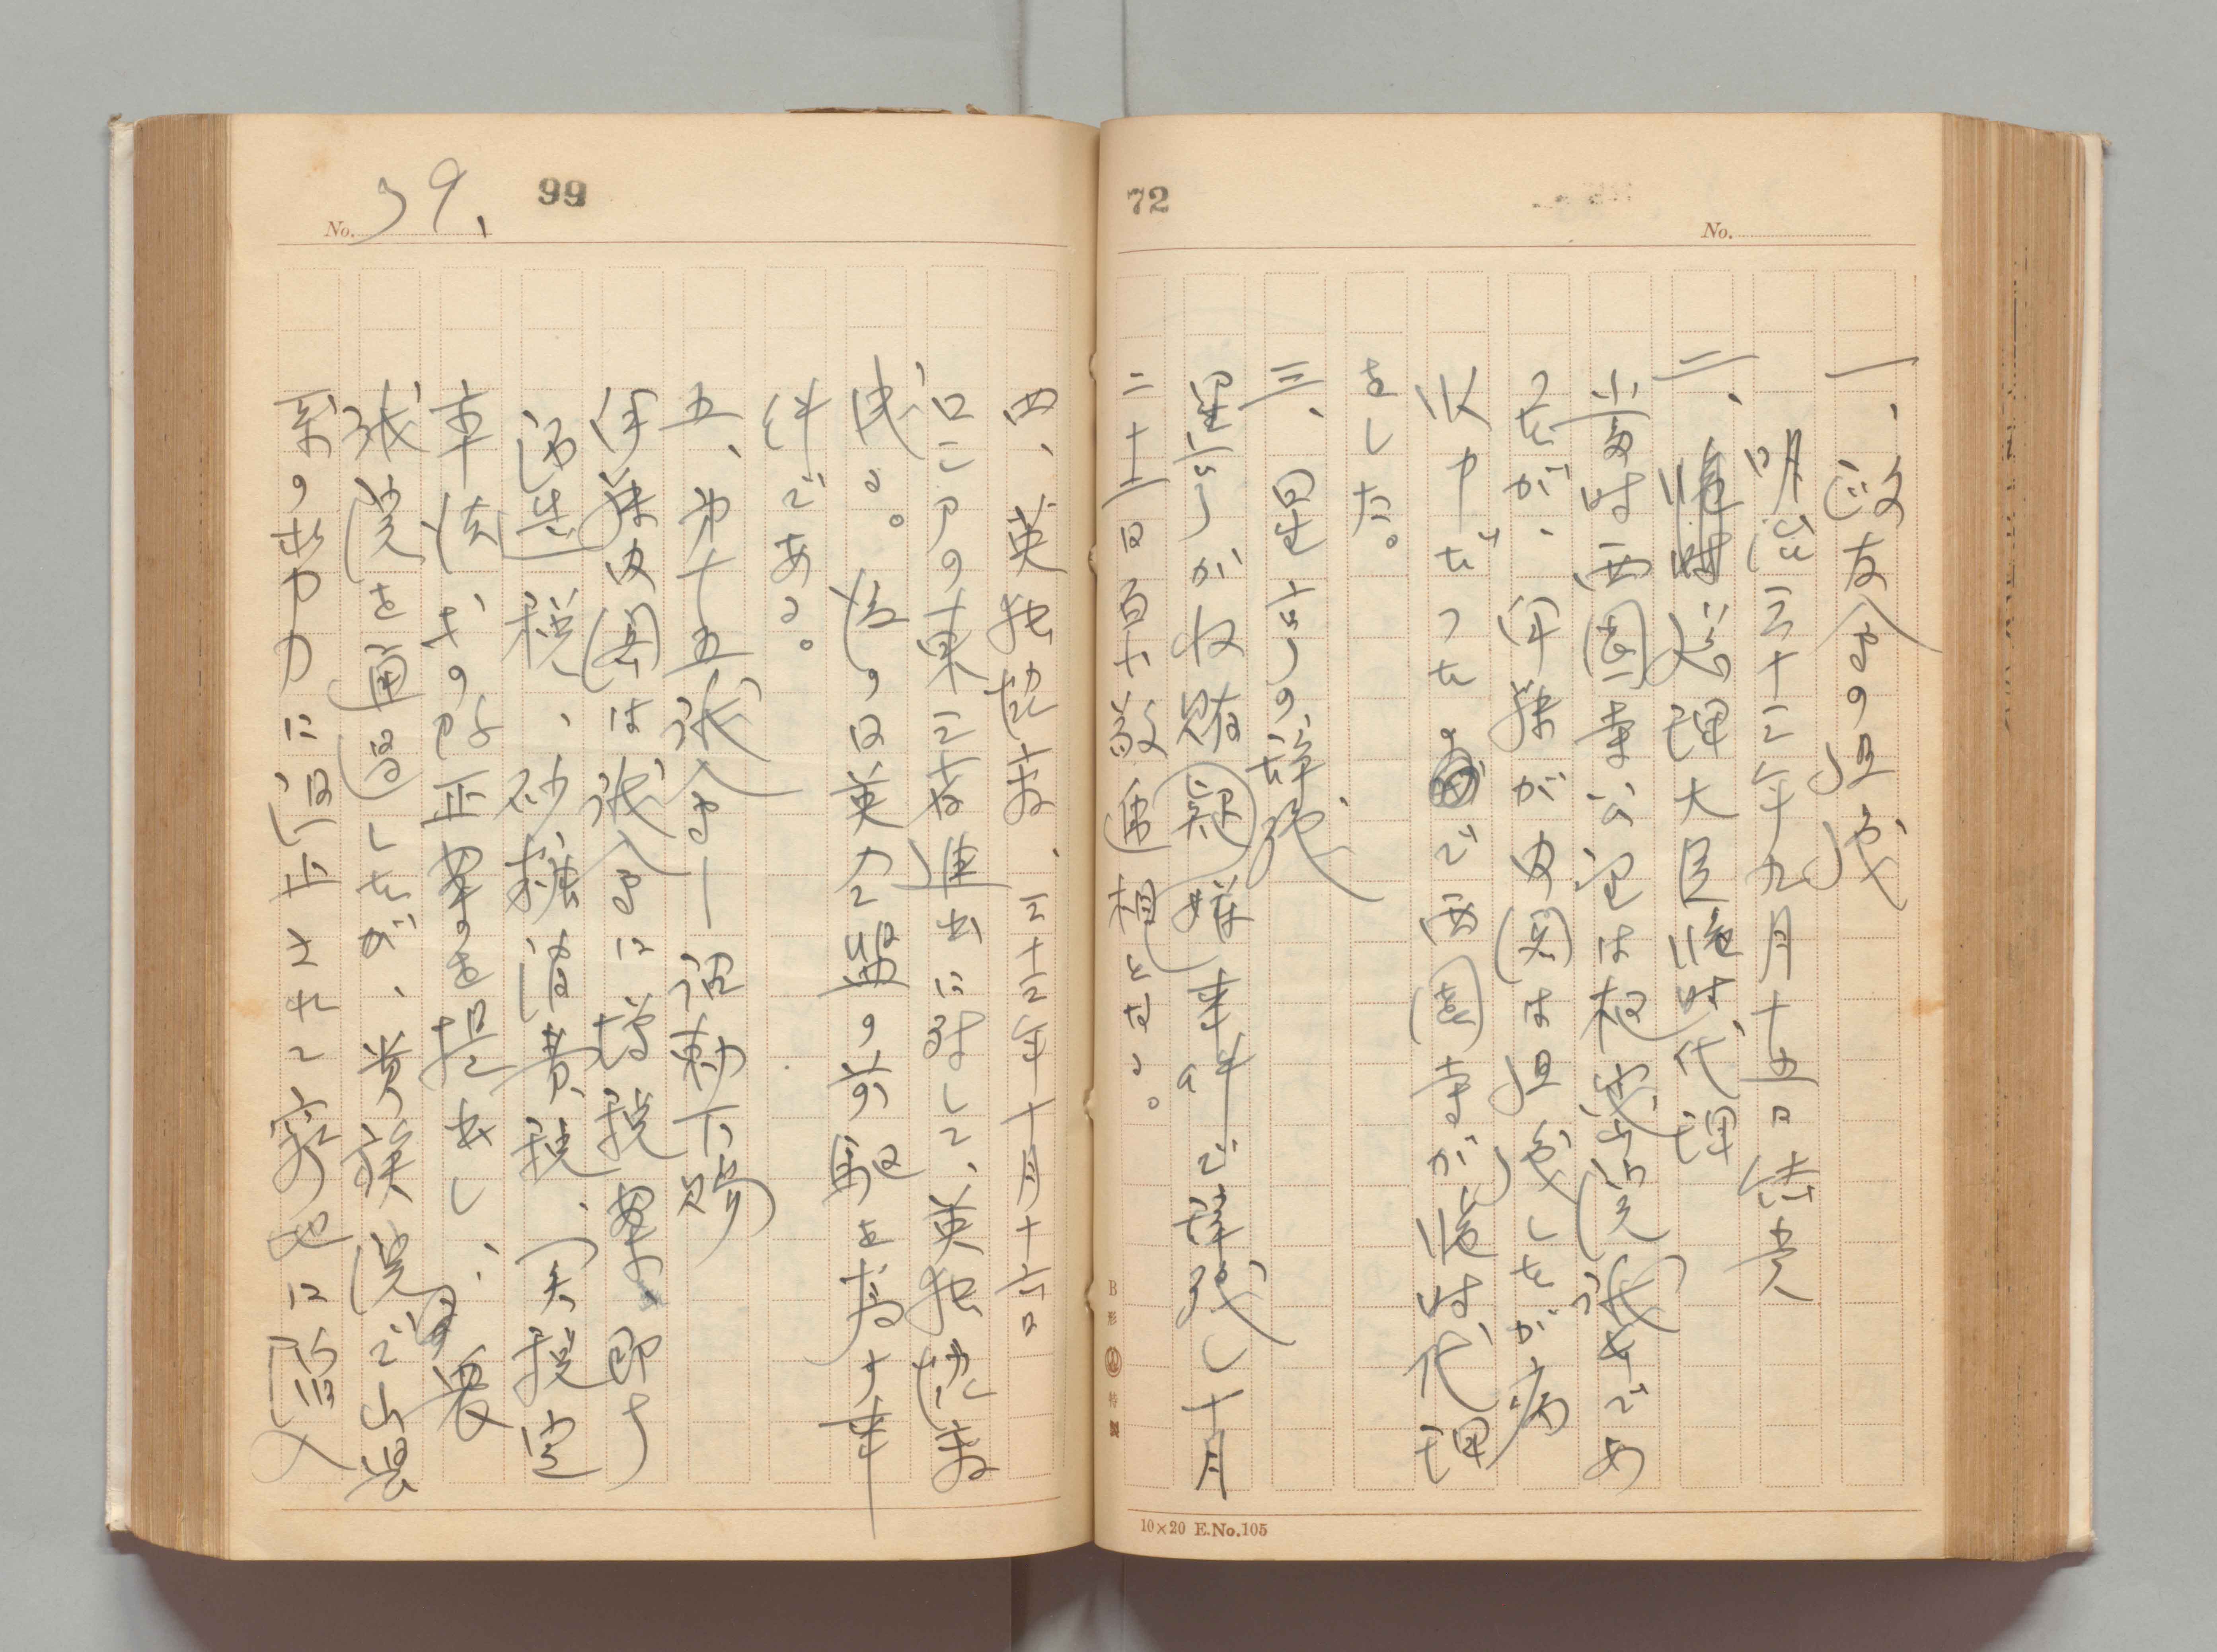 72
No.
一、政友会の組成
明治三十三年九月十五日結党
二、臨時総理大臣臨時代理
当時西園寺公望は枢密院議長であ
つたが、伊藤が内閣は組成したが病
以中だつたので西園寺が臨時代理
をした。
三、星亨の辞職
星亨が収賄疑嫌事件で辞職し十月
二十二日原敬逓相となる。
B形 特製
10×20 E.No.105
99
No. 39.
四、英独協商、三十三年十月十六日
ロシアの東三省進出に対して、英独協商
成る。後の日英同盟の前駆を為す事
件である。
五、第十五議会―詔勅下賜
伊藤内閣は議会に増税案、即ち
酒造税、砂糖消費税、関税定
率法等の改正案を提出し、衆
議院を通過したが、貴族院で山県
系の勢力に阻止されて窮地に陥入